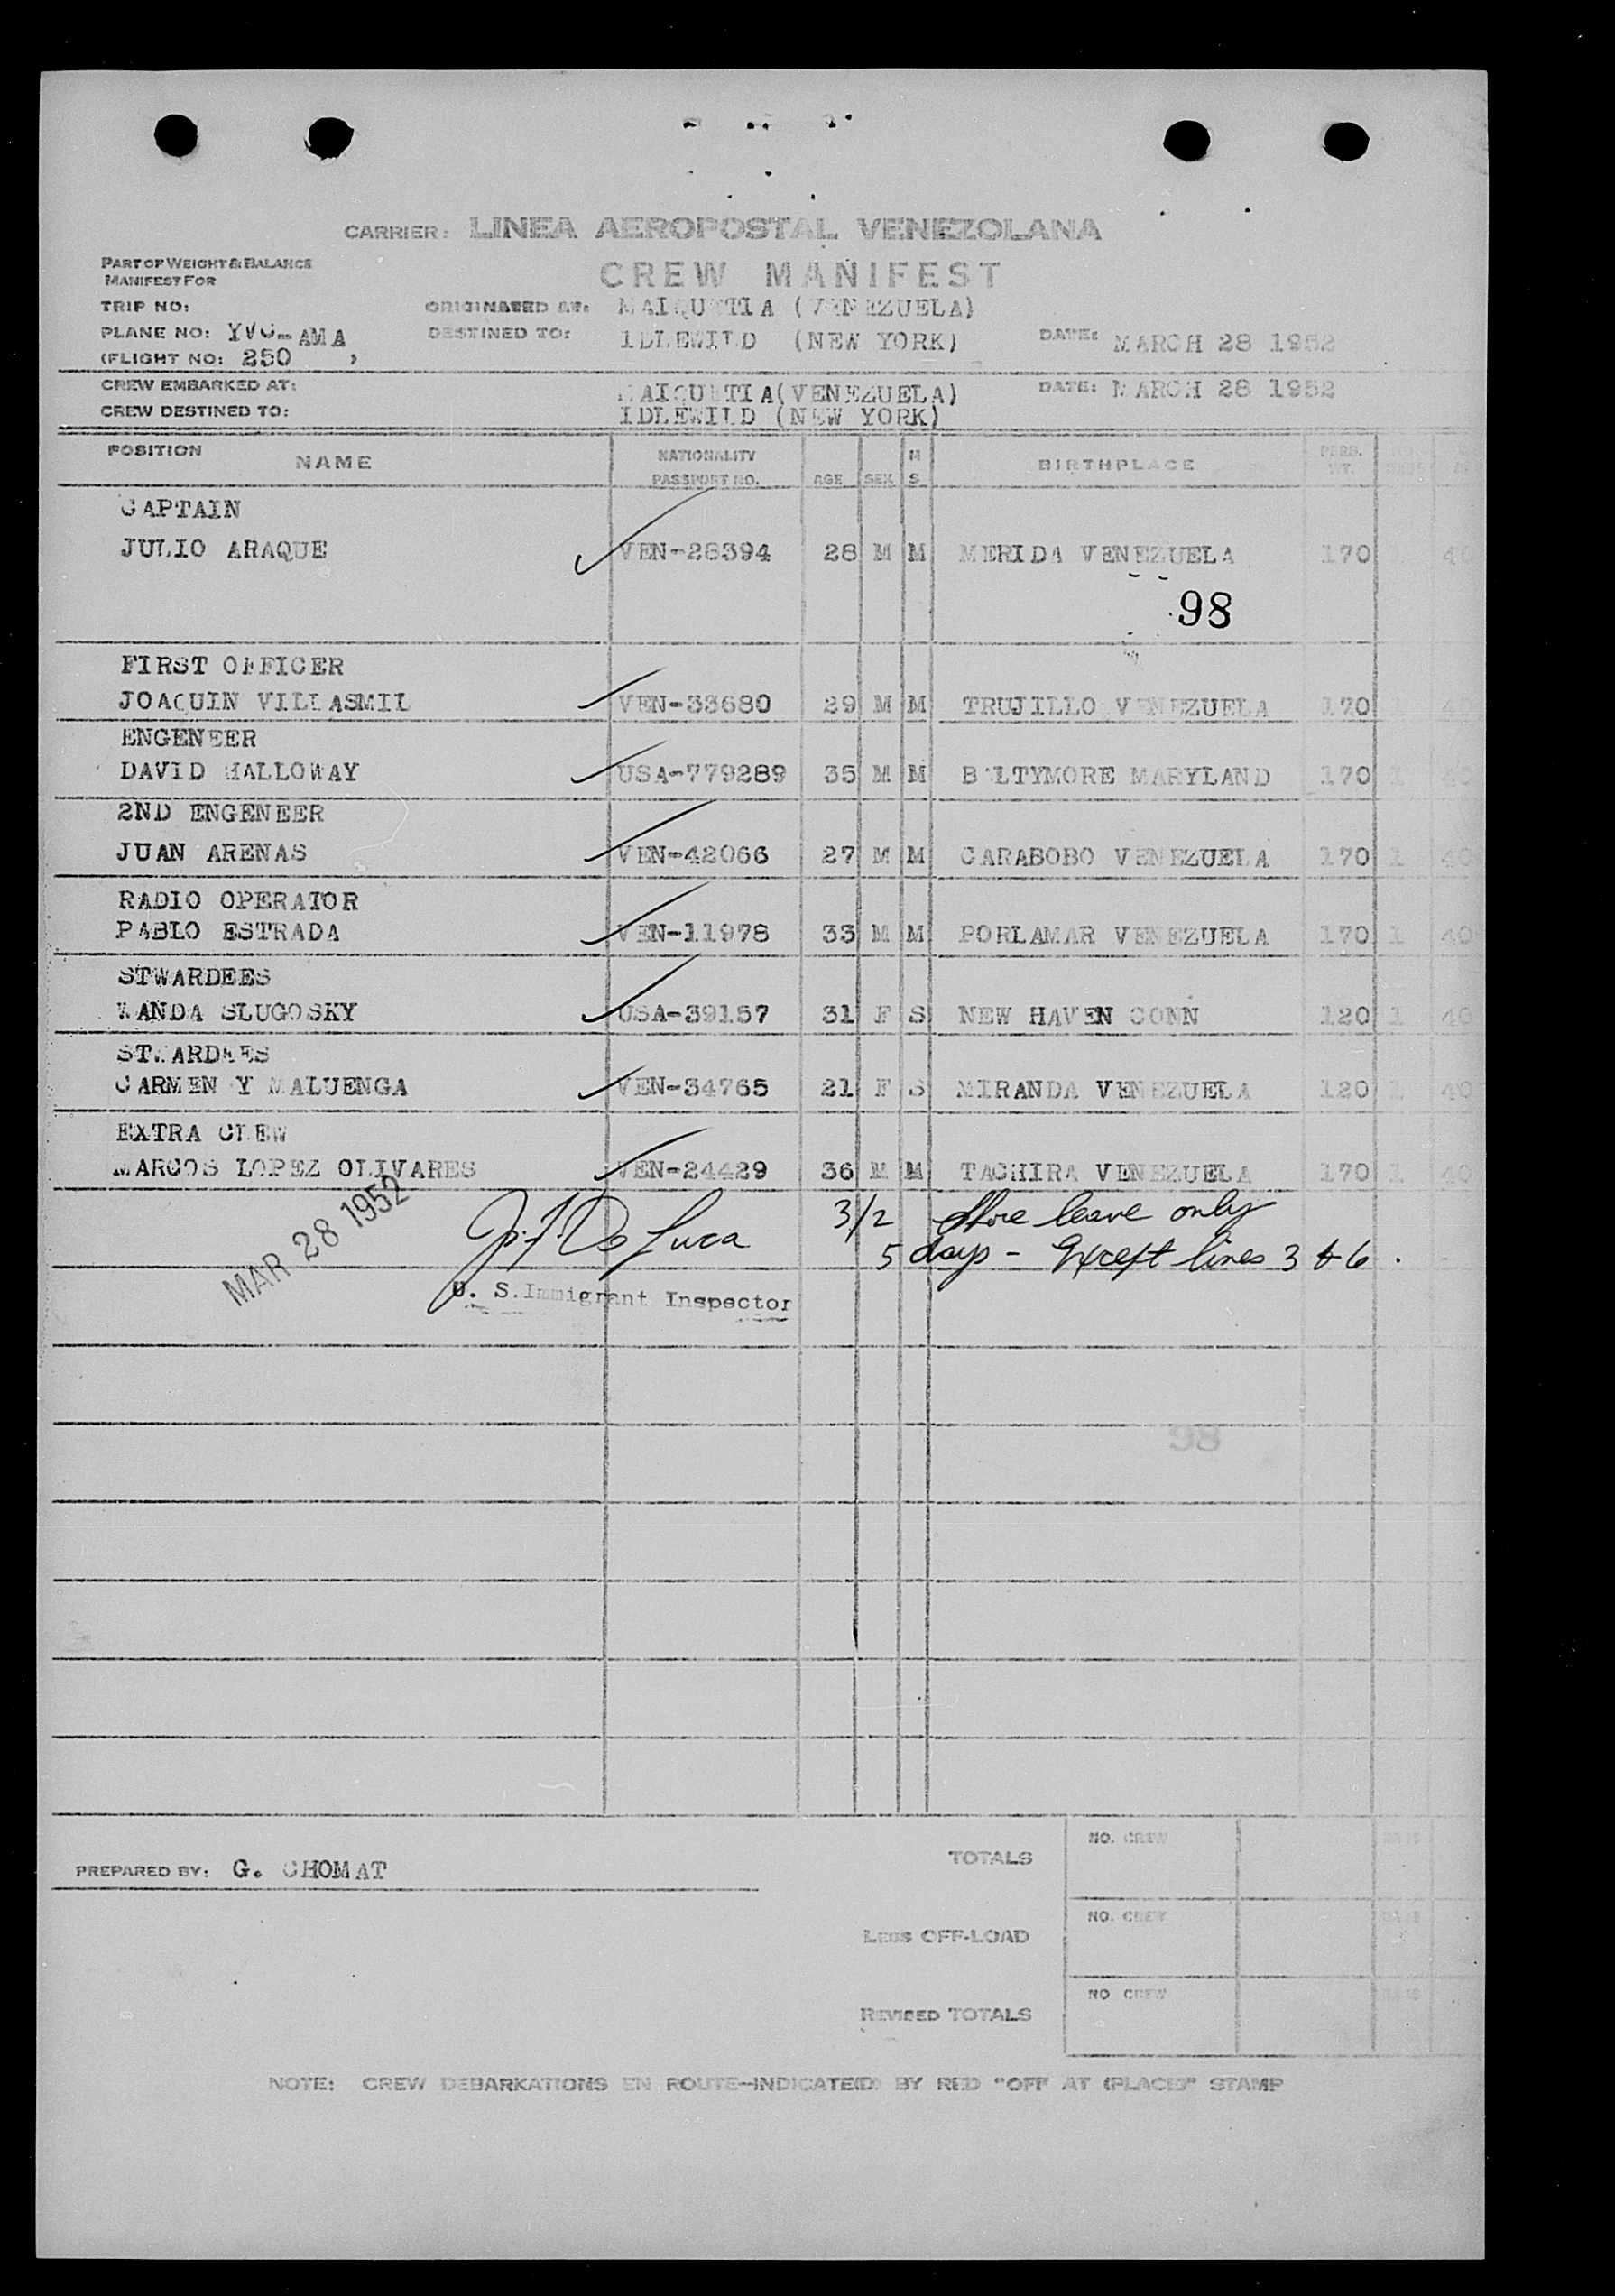 CARRIER: LINEA AEROPOSTAL VENEZOLANA
PART OF WEIGHT & BALANCE
MANIFEST FOR
CREW MANIFEST
TRIP NO: ORIGINATED AT: MAIQUETIA (VENEZUELA)
PLANE NO: YVC-AMA DESTINED TO: IDLEWILD (NEW YORK) DATE: MARCH 28 1952
(FLIGHT NO: 250 )
CREW EMBARKED AT: MAIQUETIA(VENEZUELA) DATE: MARCH 28 1952
CREW DESTINED TO: IDLEWILD (NEW YORK)
POSITION NAME NATIONALITY PASSPORT NO. AGE SEX M S BIRTHPLACE PERS. WT.
CAPTAIN
JULIO ARAQUE VEN-28394 28 M M MERIDA VENEZUELA 170 40
98
FIRST OFFICER
JOAQUIN VILLASMIL VEN-33680 29 M M TRUJILLO VENEZUELA 170
ENGENEER
DAVID HALLOWAY USA-779289 35 M M BALTYMORE MARYLAND 170 1 40
2ND ENGENEER
JUAN ARENAS VEN-42066 27 M M CARABOBO VENEZUELA 170 1 40
RADIO OPERATOR
PABLO ESTRADA VEN-11978 33 M M PORLAMAR VENEZUELA 170 1 40
STWARDEES
WANDA SLUGOSKY USA-39157 31 F S NEW HAVEN CONN 120 1 40
STWARDEES
CARMEN Y MALUENGA VEN-34765 21 F S MIRANDA VENEZUELA 120 1 40
EXTRA CREW
MARCOS LOPEZ OLIVARES VEN-24429 36 M M TACHIRA VENEZUELA 170 1 40
MAR 28 1952 J. F. De Luca 3/2 Shore leave only
5 days - Except lines 3 & 6.
U. S. Immigrant Inspector
98
PREPARED BY: G. CHOMAT
TOTALS NO. CREW
LESS OFF-LOAD NO. CREW
REVISED TOTALS NO CREW
NOTE: CREW DEBARKATIONS EN ROUTE-INDICATED BY RED "OFF AT (PLACE)" STAMP